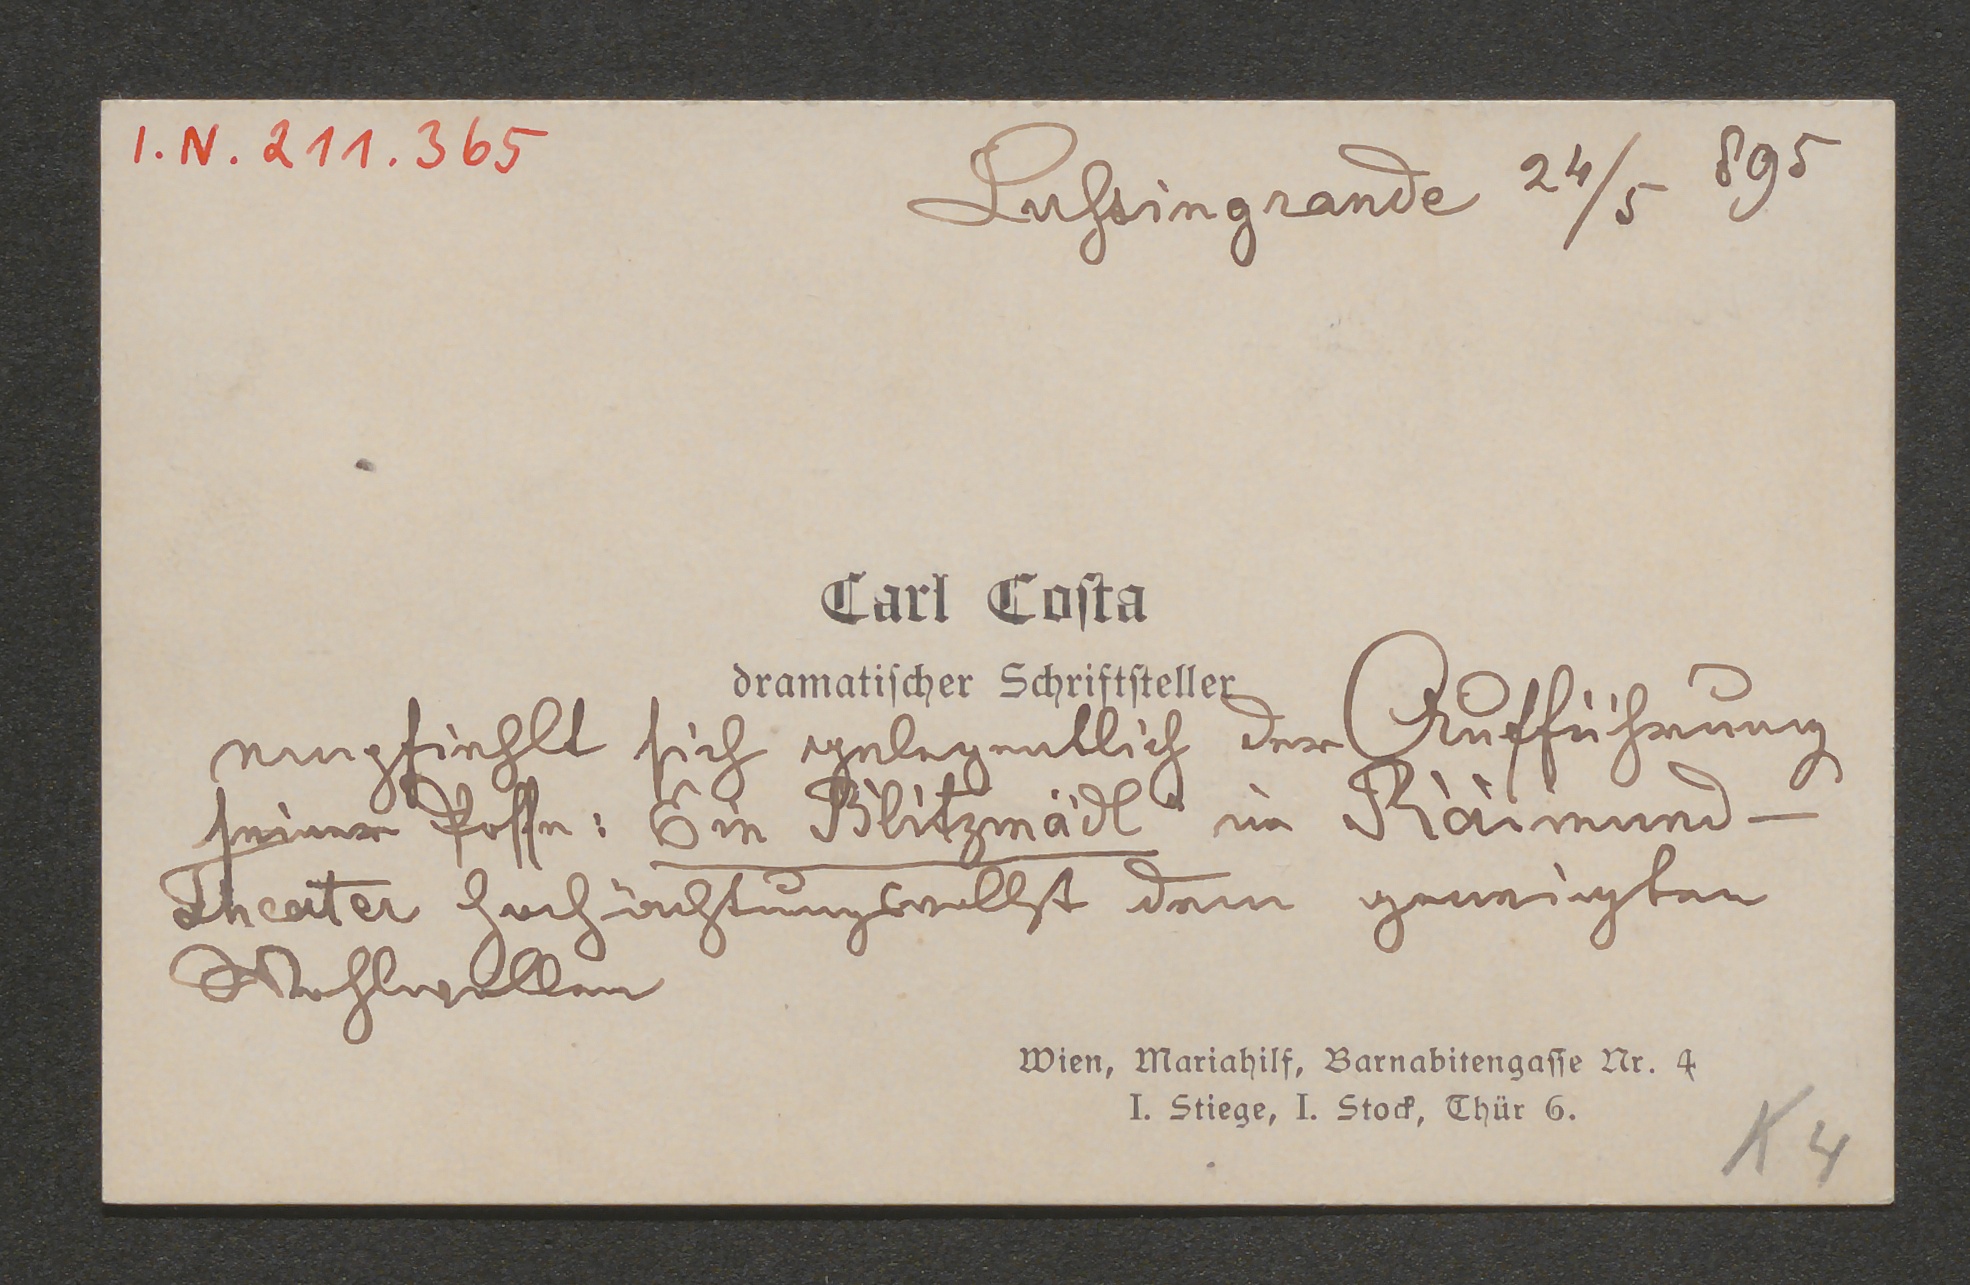 I.N. 211.365
Lussingrande 24/5 895
Carl Costa
dramatischer Schriftsteller
empfiehlt sich gelegentlich der Aufführung
seiner Posse: Ein Blitzmädl" im Raimund-
Theater hochachtungsvollst dem geneigten
Wohlwollen
Wien, Mariahilf, Barnabitengasse Nr. 4
I. Stiege, I. Stock, Thür 6.
K 4